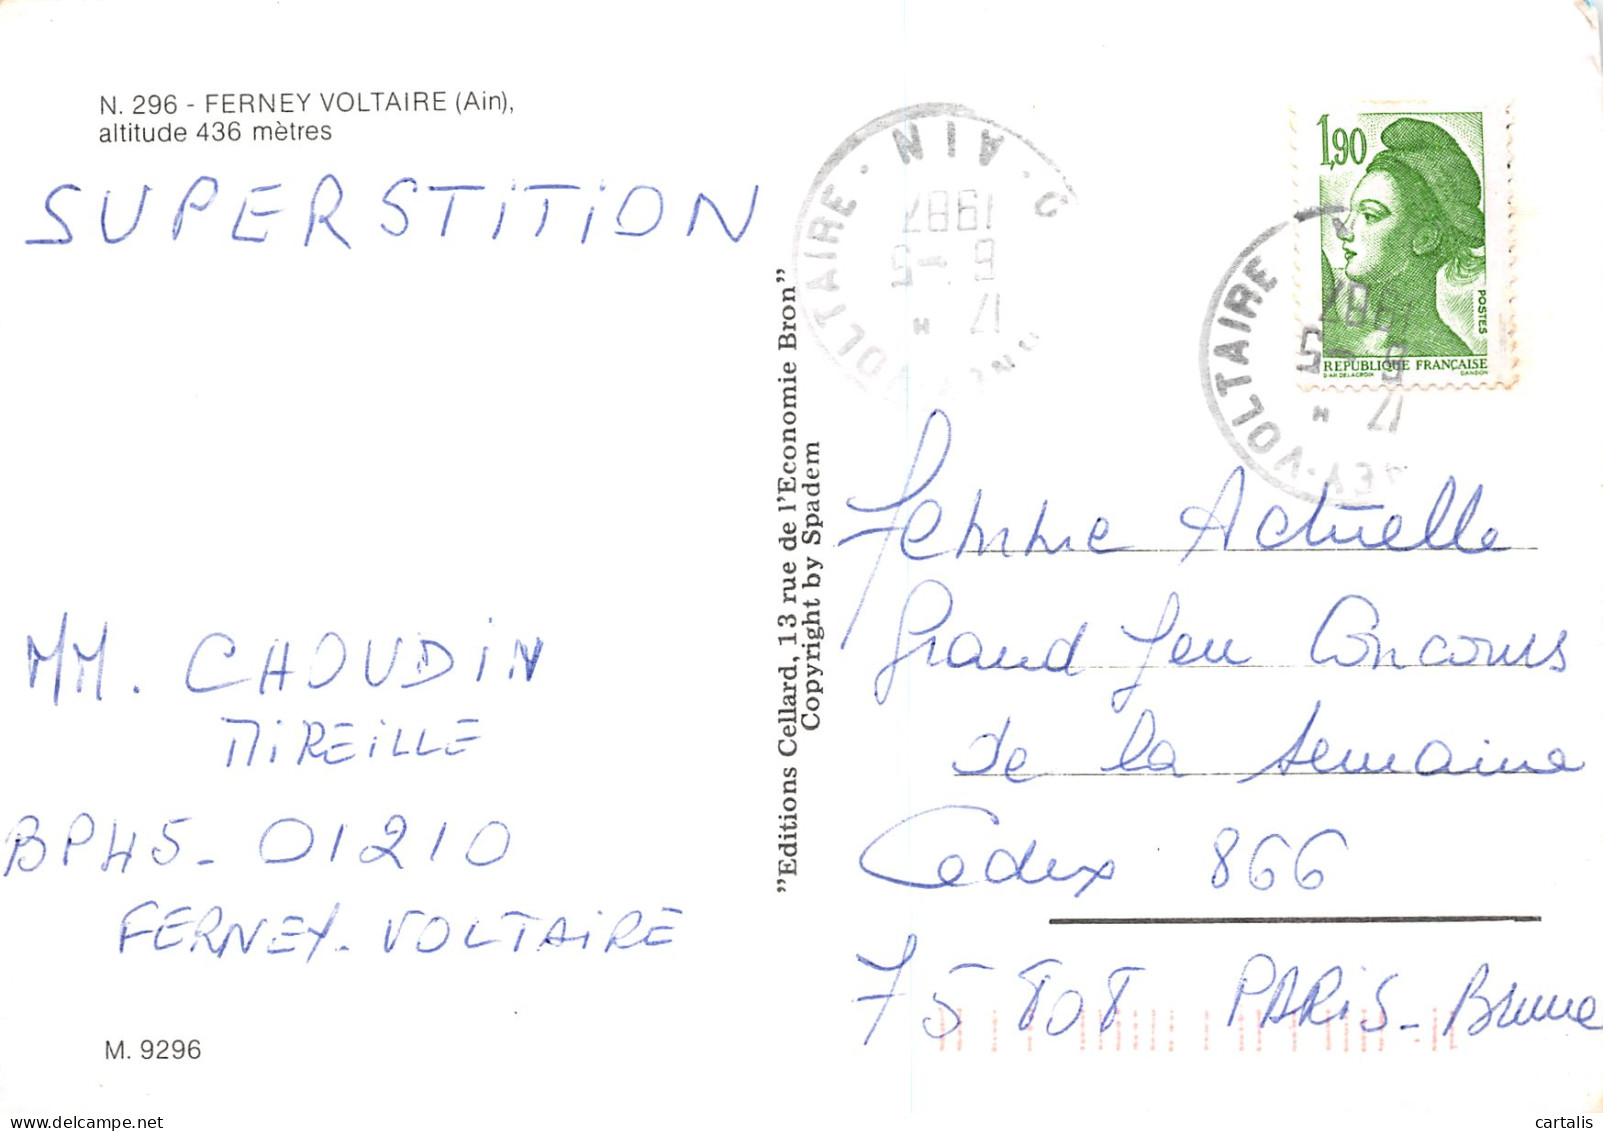 N. 296 - FERNEY VOLTAIRE (Ain),
altitude 436 mètres
SUPERSTITION
MM. CHOUDIN
MIREILLE
BP45 - 01210
FERNEY-VOLTAIRE
M. 9296
"Editions Cellard, 13 rue de l'Economie Bron"
Copyright by Spadem
VOLTAIRE · AIN ·
17 H
6 - 5
1987
1,90
POSTES
REPUBLIQUE FRANÇAISE
D'AP. DELACROIX GANDON
EY-VOLTAIRE
17 H
6 - 5
1987
Femme Actuelle
Grand Jeu Concours
de la semaine
Cedex 866
75808 PARIS - Brune
cartalis
delcampe.net